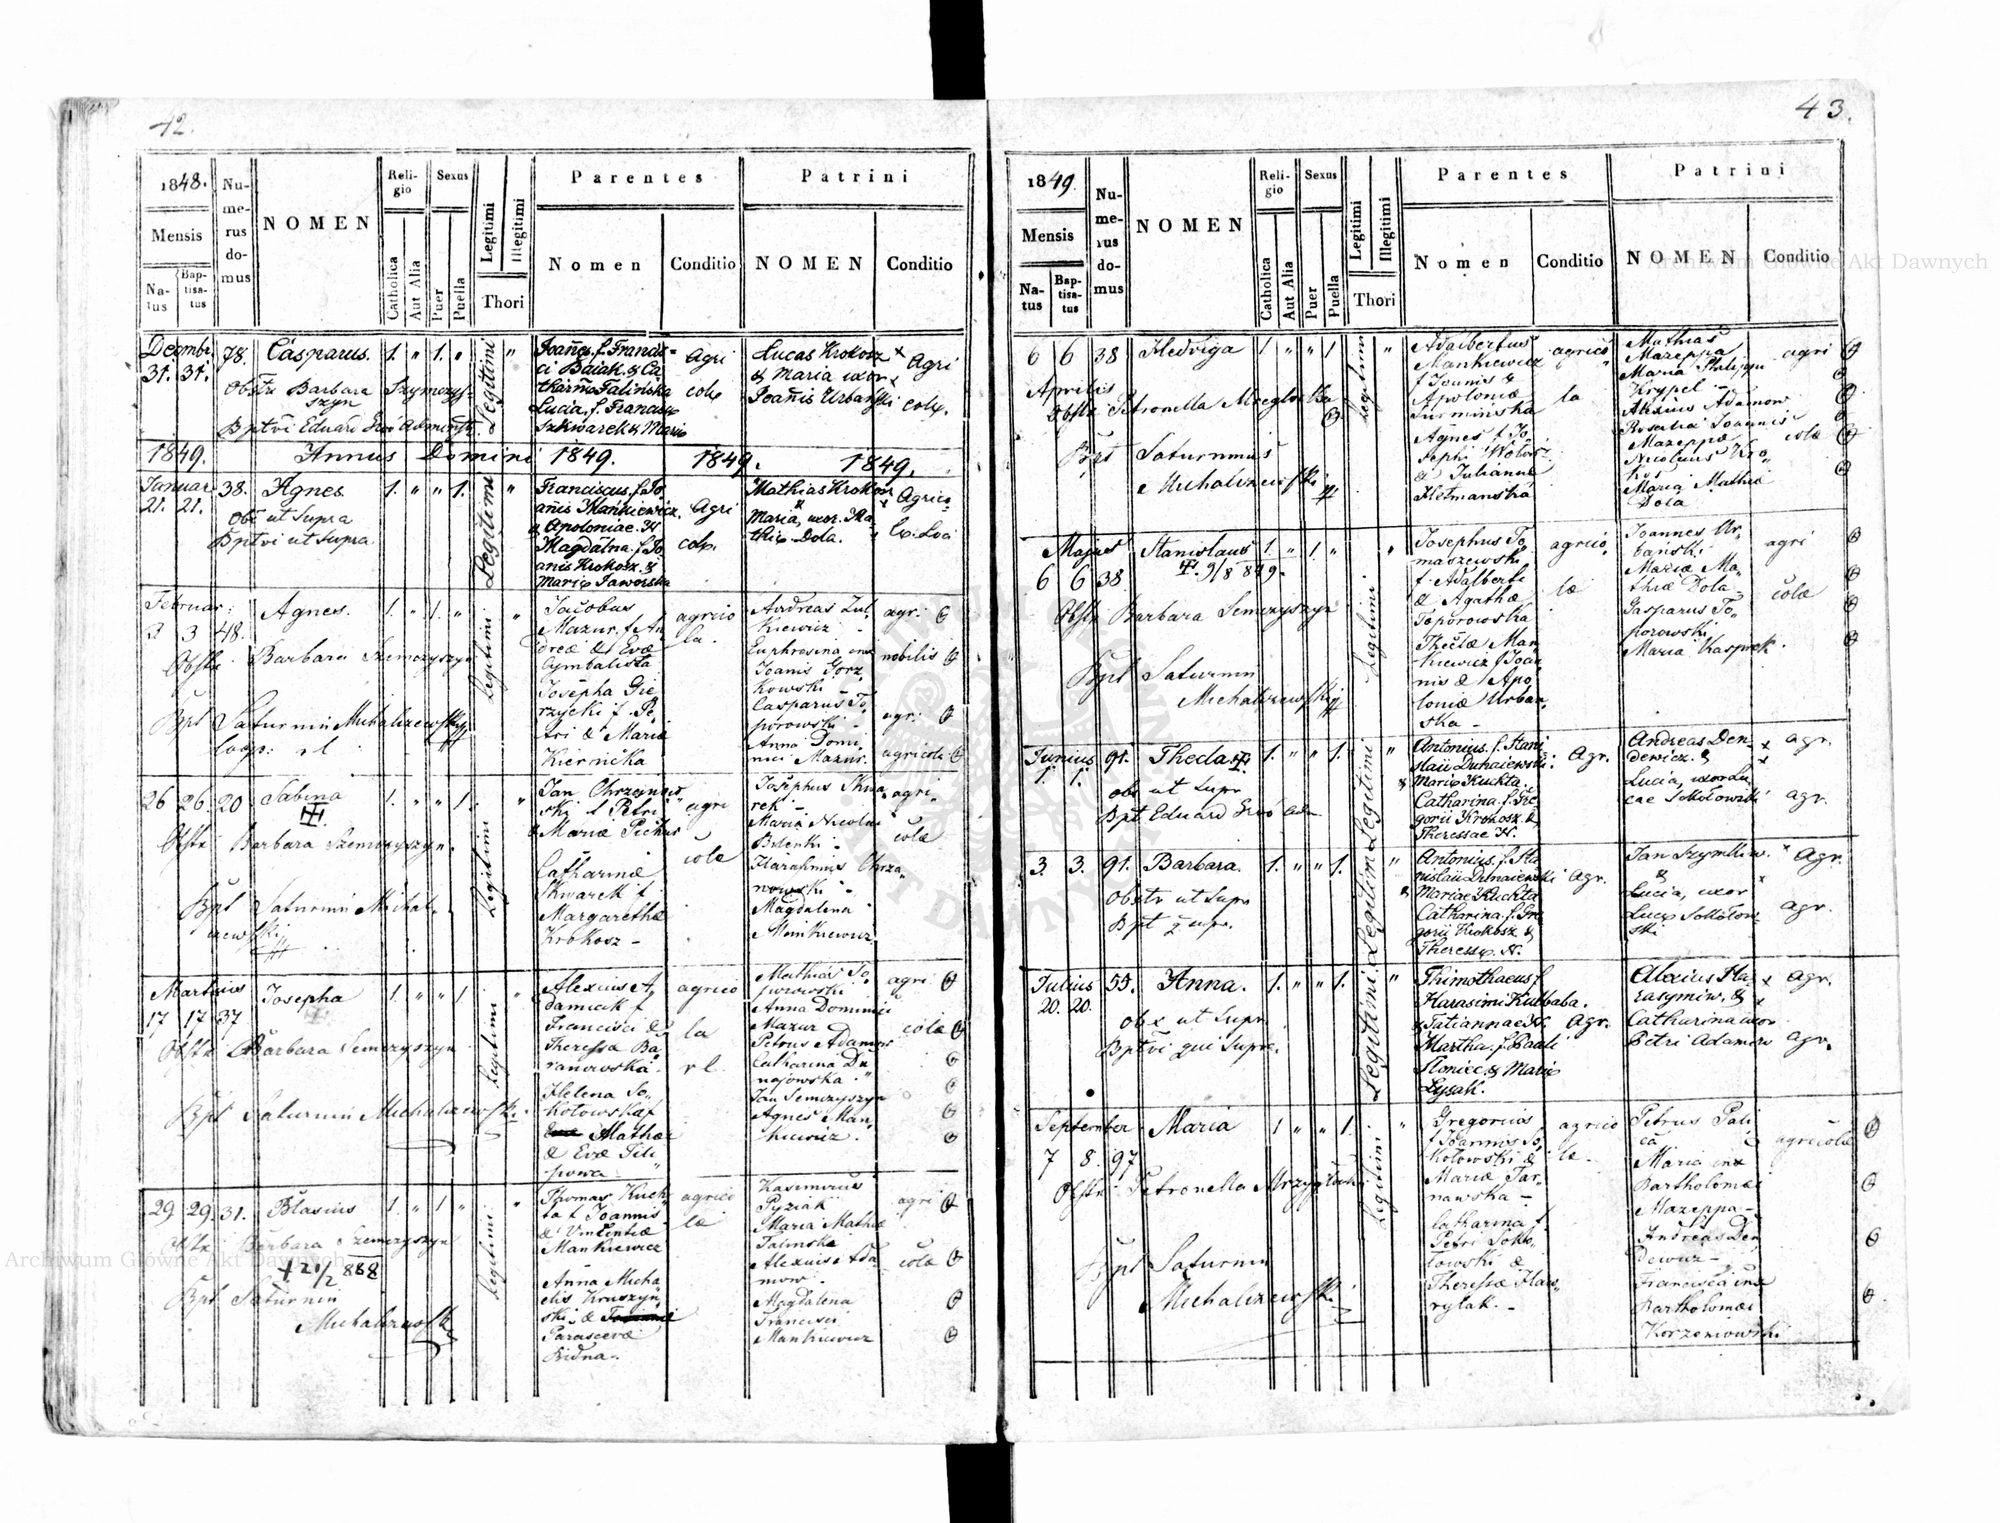 42.
1848.
Mensis
Natus
Baptisatus
Numerus domus
NOMEN
Religio
Catholica
Aut Alia
Sexus
Puer
Puella
Legitimi
Illegitimi
Thori
Parentes
Nomen
Conditio
Patrini
NOMEN
Conditio
Decembr. 78. Casparus. 1. " 1. "
31. 31.
Obstx Barbara Szymczy-
szyn
Legitimi "
ci Baiak. &
tharina Falińska
Lucia f. Francisci
Szkwarek & Maria
Agri
colæ
Lucas Krokosz x
& Maria uxor x
Joañis Urbański
Agri
colæ.
1849. Annus Domini 1849. 1849. 1849.
Januar 38. Agnes 1. " " 1.
21. 21.
Obs ut Supra
Bptvi ut Supra
Legitimi "
Franciscus f. Jo-
anis Mankiewicz
& Apoloniae. N
Magdalna f. Jo
anis Krokosz. &
Maria Jaworska
Agri
colæ.
Mathias Krokosz
Maria, uxor. Ma-
thiæ Dola.
Agrico-
Februar: Agnes. 1. " 1. "
3 3 48.
Obstx Barbara Szemczyszyn
Bpt Saturnin Michalczewski
Legitimi "
Jacobus
Mazur. f. An
dreæ & Evæ
Cymbalista
Josepha Grze
rzycki f. Pe
tri & Mariæ
Kiernicka
agrico
la.
Andreas Zul
Kiewicz -
Euphrosina
Joanis Gorz
Kowski -
Casparus To
porowski -
Anna Domi-
nici Mazur.
agri.
nobilis
agri
agricola
26 26. 20 Sabina 1. " " 1.
Obstx Barbara Szemczyszyn.
Bpt Saturnin Michal-
czewski
Legitimi "
Jan Chrzanow
ski f Petri
& Mariæ
Catharina
Skwarek f.
Margaretha
Krokosz -
agri
colæ
Josephus Skwa
rek -
Maria Nicolai
Bilenki -
Chrza
nowski -
Magdalena
Mankiewicz.
agri"
colæ
Martius Josepha 1. " " 1
17 17 37
Obstx Barbara Semczyszyn
Bpt Saturnin Michalczewski
Legitimi "
Alexius A
damcik f
Francisci &
Theressa Ba
ranowska -
Helena So-
kołowska f
Mathæ
& Evæ Fili
powa "
agrico
la
Mathias To
porowski
Anna Dominici
Mazur
Petrus Adamow
Catharina Du
najowska "
Jan Semczyszyn
Agnes Man-
kiewicz.
agri
colæ
29 29. 31. Blasius 1. " 1 "
Obstx Barbara Szemczyszyn
† 21/2 888
Bpt Saturnin
Michalczewski
Legitimi "
Thomas Kuch
ta f Joannis
& Vincentiæ
Mankiewicz
Anna Micha
elis Kruszyn
ski & 
Parascevæ
Bidna.
agrico
la
Kasimirus
Pyziak
Maria Mathiæ
Falinska
Alexius Ada
mow -
Magdalena
Francisci
Mankiewicz
agri
colæ
43.
1849.
Mensis
Natus
Baptisatus
Numerus domus
NOMEN
Religio
Catholica
Aut Alia
Sexus
Puer
Puella
Legitimi
Illegitimi
Thori
Parentes
Nomen
Conditio
Patrini
NOMEN
Conditio
6 6 38 Hedviga 1 " " 1
Aprilis
Obstx Petronella
Bpt Saturninus
Michalczewski
Legitimi "
Adalbertus
Mankiewicz
f Joannis &
Apoloniæ
Surminska
Agnes f Jo
sephi
& Julianna
Hetmanska
agrico
la
Mathias
Mazeppa
Maria
Krypel -
Alexius Adamow
Rosalia Joannis
Mazeppæ
Nicolaus
Maria Mathiæ
Dola
agri
colæ
Majus Stanislaus 1. " 1. "
6 6 38 9/8 849.
Obstx Barbara Semczyszyn
Bpt Saturnin
Michalczewski
Legitimi "
Josephus To
maszewski
f. Adalberti
& Agathæ
Toporowska
Theclæ Man
kiewicz f Joan
nis & Apo
loniæ Urban
ska -
agrico
læ
Joannes Ur-
banski
Mariæ Ma-
thiæ Dola
Gasparus To-
porowski
Maria Kasprek.
agri
colæ
Junius 91. Thecla 1. " " 1.
1. 1.
obs ut Supr
Bpt Eduard
Legitimi "
Antonius f. Stani
slaii Dunaiewski
& Mariæ Kuchta
Catharina f. Gre
gorii Krokosz &
Theressae N.
Agr.
Andreas Den-
dewicz. &
Lucia, uxor Lu
cae Sokołowski
agr.
agr.
3. 3. 91. Barbara. 1. " " 1.
Obstx ut Supr
Bpt q supr.
Legitimi "
Antonius f. Sta
nislaii Dunaiewski
& Mariae Kuchta
Catharina f. Gre
gorii Krokosz &
Theressæ N.
Agr.
Jan Szymkiw.
&
Lucia, uxor
Lucæ Sokołow-
ski
Agr.
agr.
Julius 55. Anna. 1. " " 1.
20. 20.
obs ut Supr
Bptvi qui Supra.
Legitimi "
Thimothaeus f
Harasimi Kulbaba.
& Tatiannae N.
Martha f. Pauli
Słoniec & Mariæ
Lysak.
Agr.
Alexius Ha
rasymiw. &
Catharina uxor
Petri Adamow
Agr.
agr.
September Maria 1 " " 1.
7 8. 97
Obstx Petronella
Bpt Saturnin
Michalczewski
Legitimi "
Gregorius
f Joannis So
kołowski &
Mariæ Tar
nawska -
Catharina f.
Petri Soko
łowski &
Theressæ Haw
rylak. -
agrico
la.
Petrus Pali
ca
Maria
Bartholomæi
Mazeppa -
Andreas Den
dewicz -
Francisca
Bartholomæi
Korzeniowski
agricolæ
Archiwum Główne Akt Dawnych
Archiwum Główne Akt Dawnych